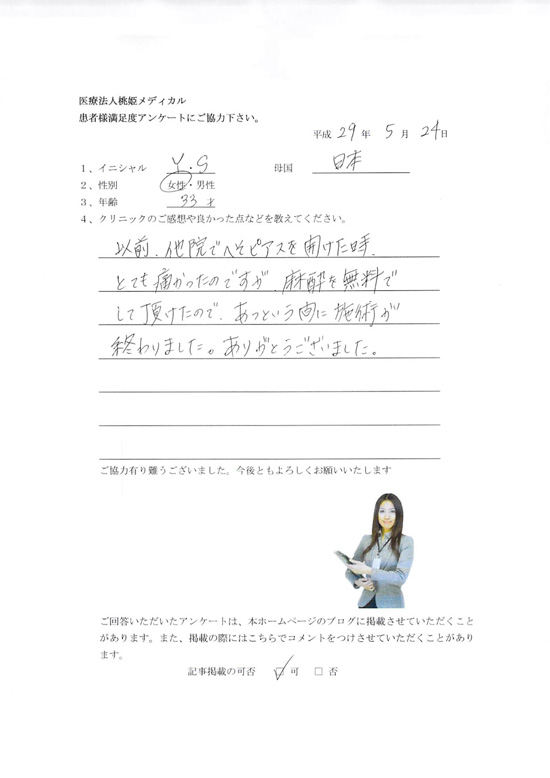 医療法人桃姫メディカル
患者様満足度アンケートにご協力下さい。
平成 29 年 5 月 24 日
1、イニシャル Y・S 母国 日本
2、性別 女性・男性
3、年齢 33 才
4、クリニックのご感想や良かった点などを教えてください。
以前、他院でへそピアスを開けた時、
とても痛かったのですが、麻酔を無料で
して頂けたので、あっという間に施術が
終わりました。ありがとうございました。
ご協力有り難うございました。今後ともよろしくお願いいたします
ご回答いただいたアンケートは、本ホームページのブログに掲載させていただくこと
があります。また、掲載の際にはこちらでコメントをつけさせていただくことがあり
ます。
記事掲載の可否 ☑ 可 □ 否